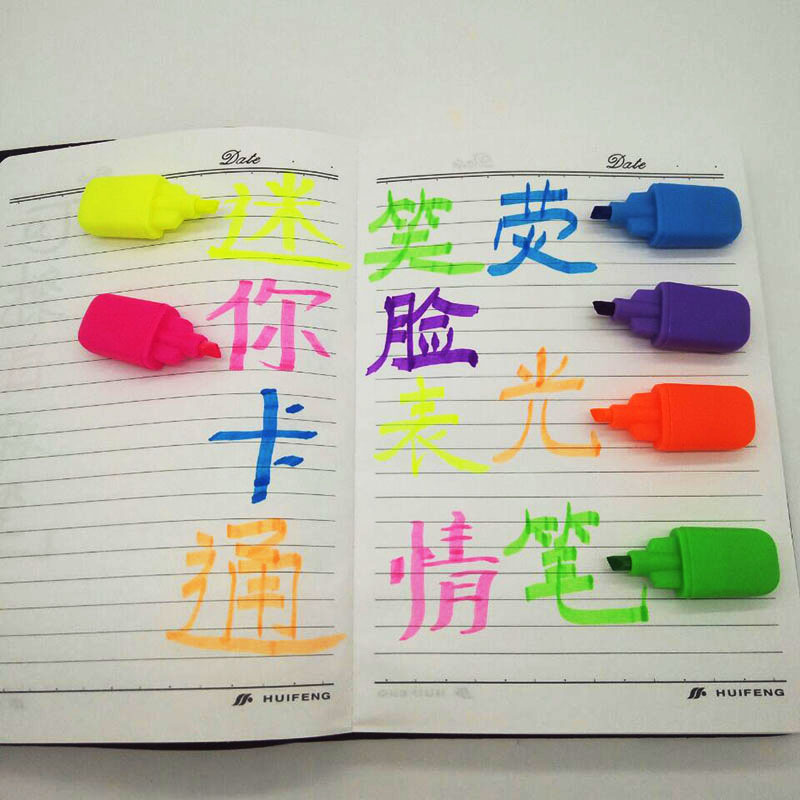 Date
迷你卡通
HUIFENG
Date
笑脸表情
荧光笔
HUIFENG